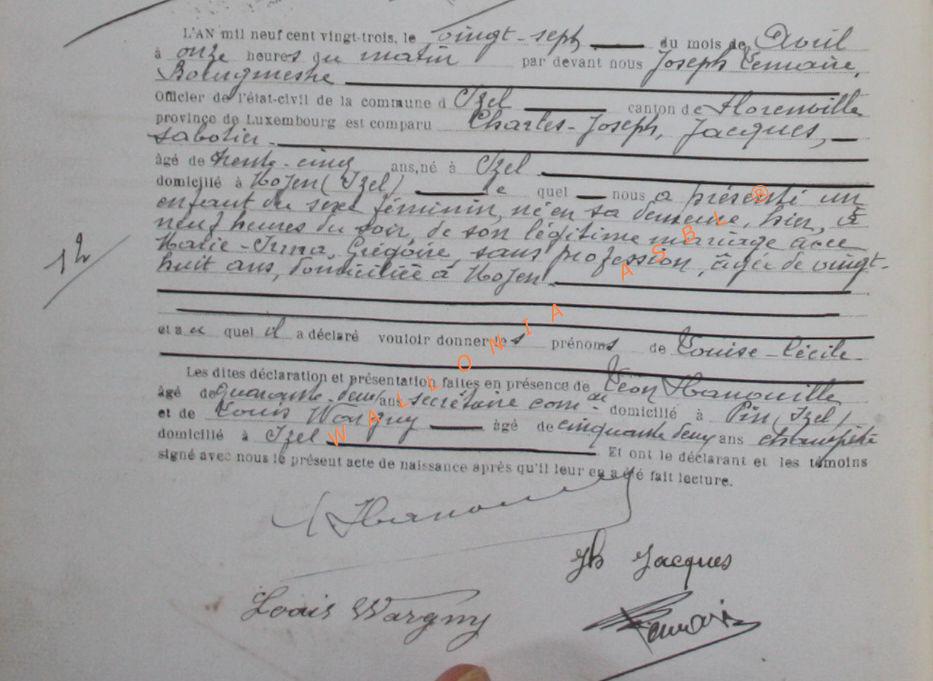 L'AN mil neuf cent vingt-trois, le vingt-sept du mois de Avril
à onze heures du matin par devant nous Joseph Lemaire,
Bourgmestre
Officier de l'état-civil de la commune d Izel canton de Florenville
province de Luxembourg est comparu Charles-Joseph, Jacques,
sabotier
âgé de trente-cinq ans, né à Izel
domicilié à Moyen (Izel) le quel nous a présenté un
enfant du sexe féminin, né en sa demeure, hier, à
neuf heures du soir, de son légitime mariage avec
Marie-Irma, Grégoire, sans profession, âgée de vingt-
12
huit ans, domiciliée à Moyen
et a u quel il a déclaré vouloir donner les prénoms de Louise-Cécile
Les dites déclaration et présentation faites en présence de Léon Hanouille
âgé de quarante-deux ans secrétaire com-al domicilié à Pin (Izel)
et de Louis Wargny âgé de cinquante deux ans champêtre
domicilié à Izel Et ont le déclarant et les témoins
signé avec nous le présent acte de naissance après qu'il leur en a été fait lecture.
WALLONIA ASBL ®
Jh Jacques
Louis Wargny
Lemaire